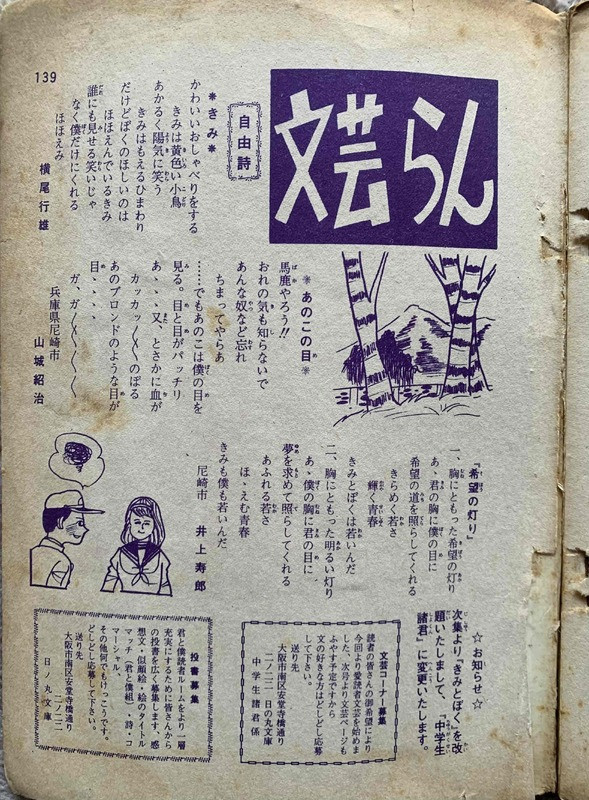 139
文芸らん
自由詩
＊きみ＊
かわいいおしゃべりをする
きみは黄色い小鳥
あかるく陽気に笑う
きみはもえるひまわり
だけどぼくのほしいのは
ほほえんでいるきみ
誰にも見せる笑いじゃ
なく僕だけにくれる
ほほえみ
横尾行雄
＊あのこの目＊
馬鹿やろう!!
おれの気も知らないで
あんな奴など忘れ
ちまってやらあ
……でもあのこは僕の目を
見る。目と目がバッチリ
あ、、、又、とさかに血が
カッカッ〳〵〳〵のぼる
あのブロンドのような目が
目、、、、
ガ、ガ〳〵〳〵〳〵〳〵
兵庫県尼崎市
山城紹治
『希望の灯り』
一、胸にともった希望の灯り
あゝ君の胸に僕の目に
希望の道を照らしてくれる
きらめく若さ
輝く青春
きみとぼくは若いんだ
二、胸にともった明るい灯り
あゝ僕の胸に君の目に
夢を求めて照らしてくれる
あふれる若さ
ほゝえむ青春
きみも僕も若いんだ
尼崎市
井上寿郎
☆お知らせ☆
次集より「きみとぼく」を改
題いたしまして、『中学生
諸君』に変更いたします。
文芸コーナー募集
読者の皆さんの御希望により
今回より愛読者文芸を始めま
した、次号より文芸ページも
ふやす予定ですから
文の好きな方はどしどし応募
して下さい。
送り先
大阪市南区安堂寺橋通り
二ノ二二 日の丸文庫
中学生諸君係
投書募集
君と僕読者ルームをより一層
充実にするために皆さんから
の投書を広く募集します、感
想文・似顔絵・絵のタイトル
マッチ（君と僕組）・詩・コ
マーシャル、
その他何でもけっこうです。
どしどし応募して下さい。
送り先
大阪市南区安堂寺橋通り
二ノ二二
日ノ丸文庫